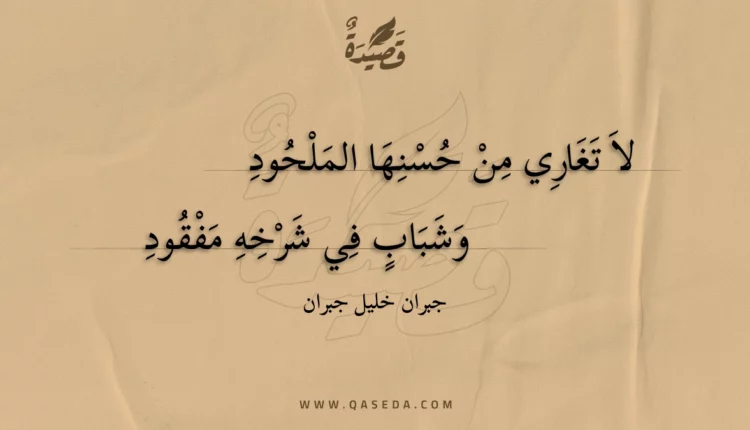 قَصِيْدَةٌ
لاَ تَغَارِي مِنْ حُسْنِهَا المَلْحُودِ
وَشَبَابٍ فِي شَرْخِهِ مَفْقُودِ
جبران خليل جبران
WWW.QASEDA.COM